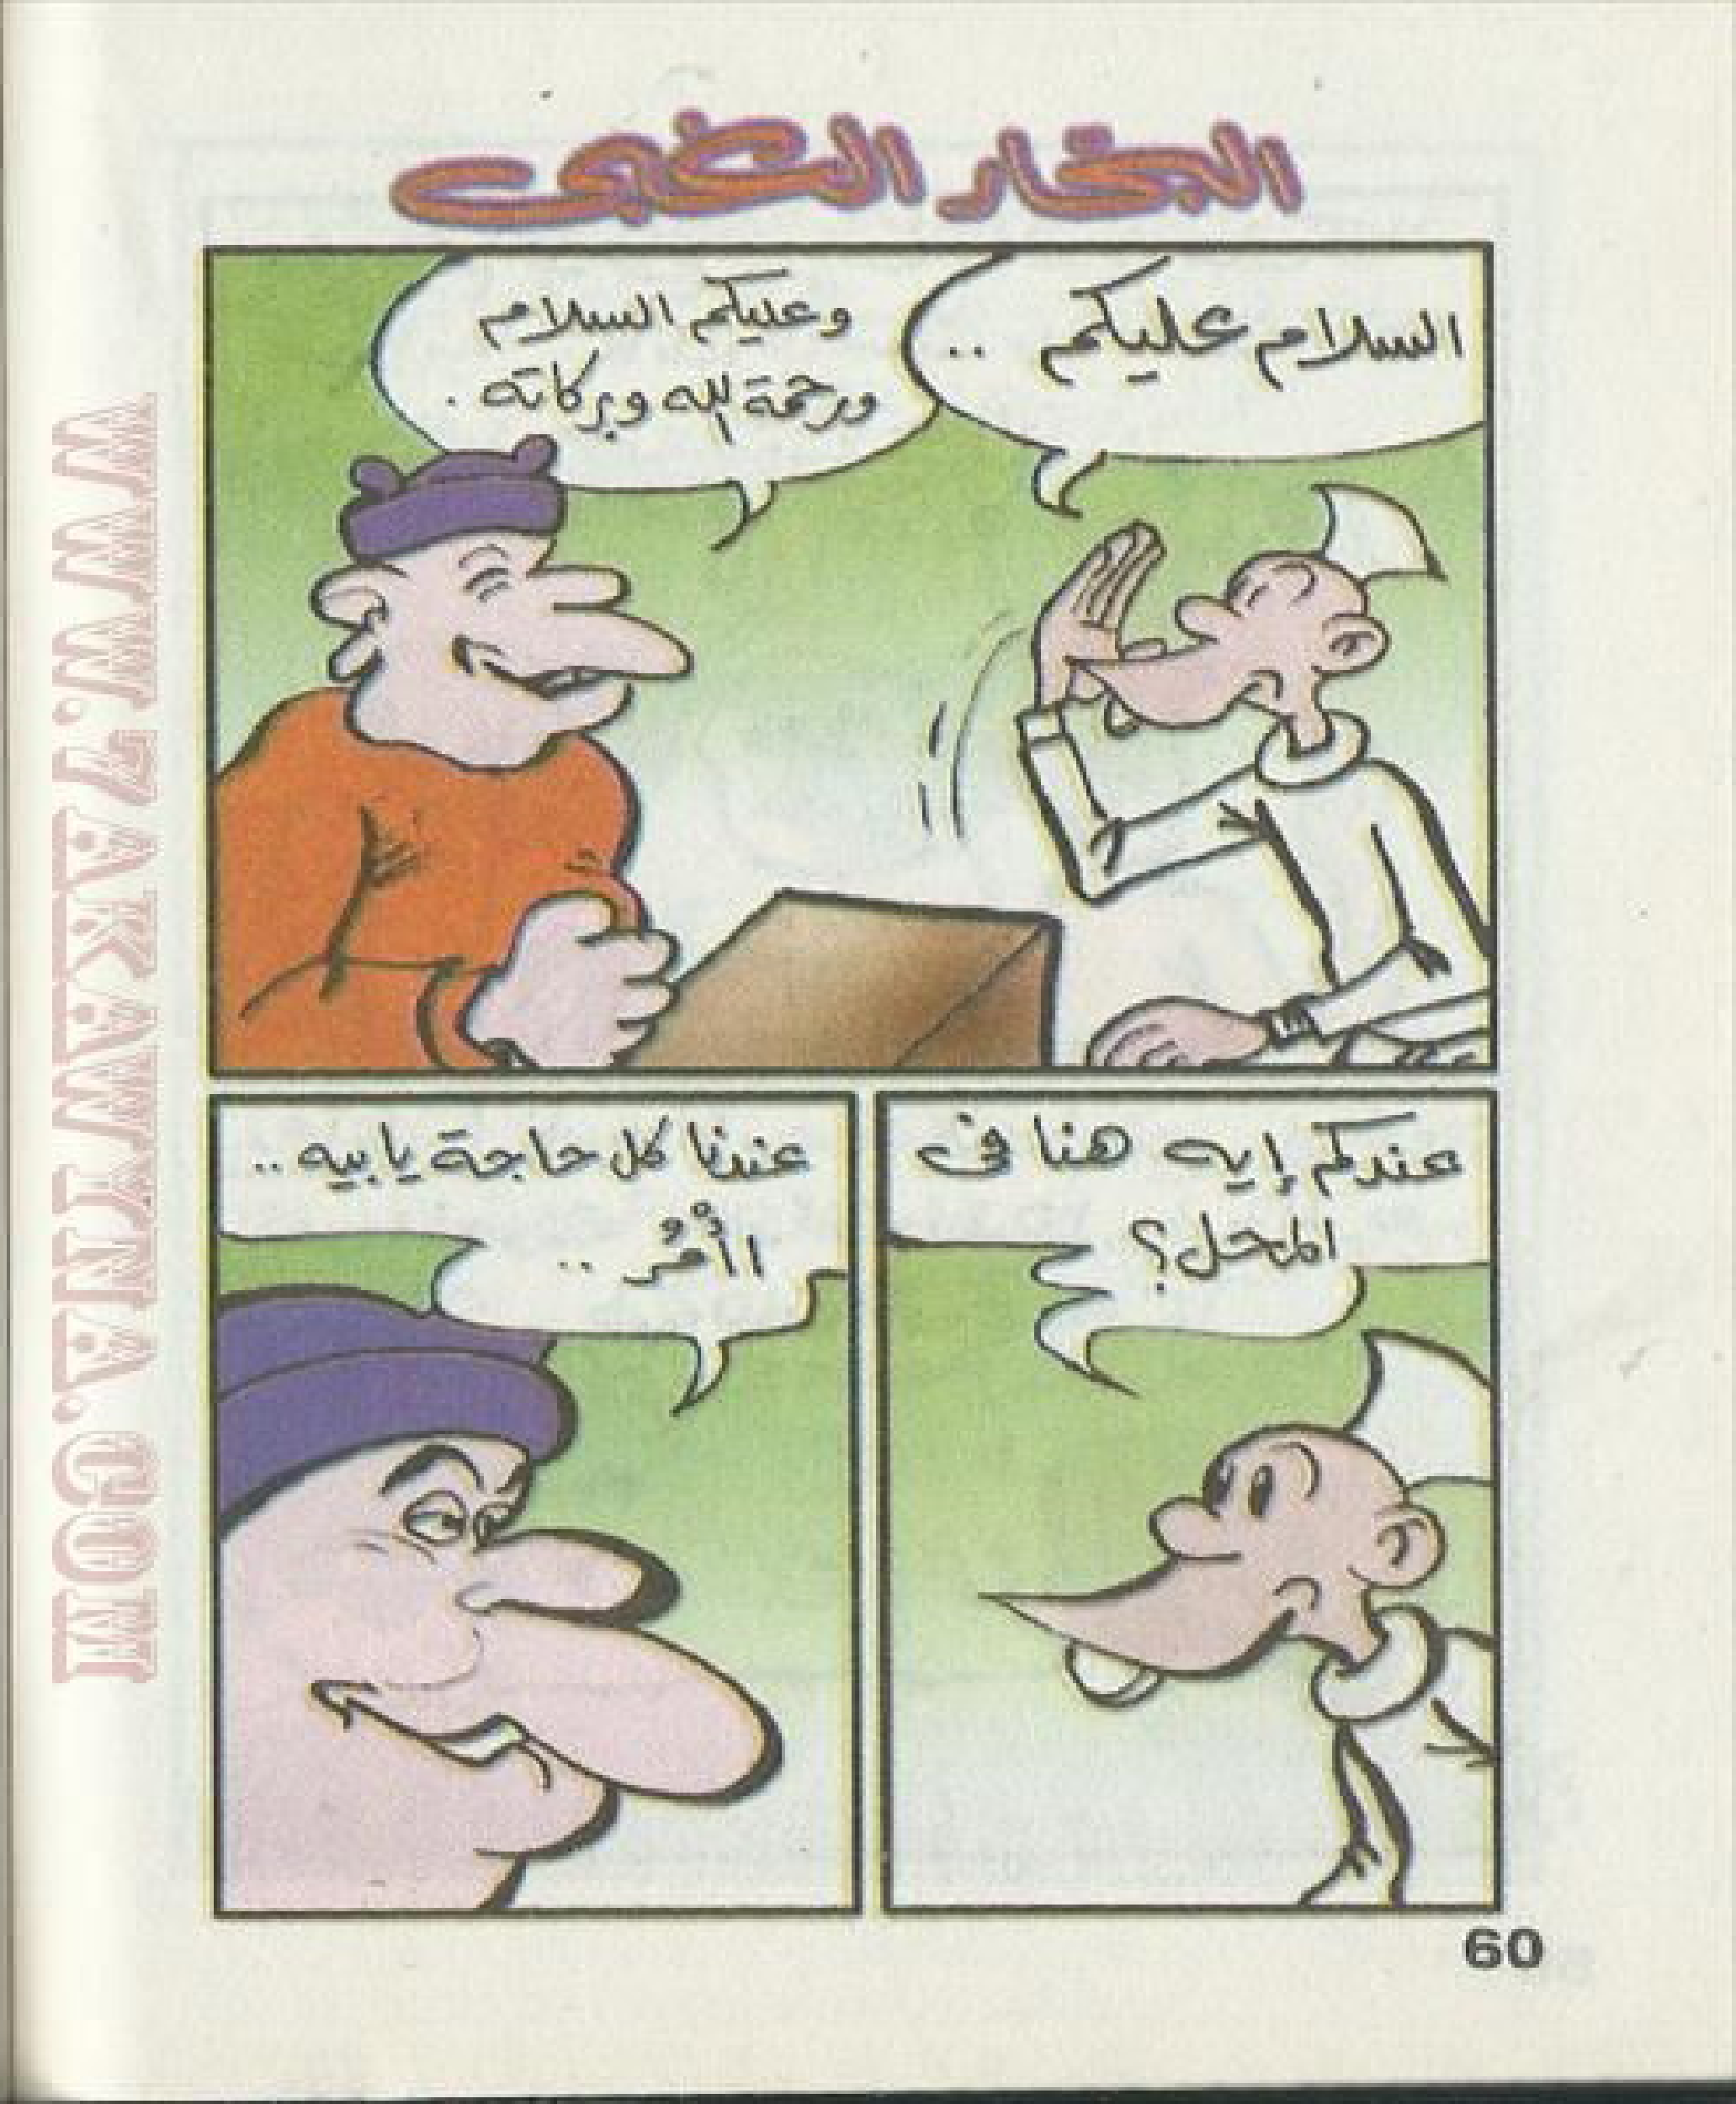 السلام عليكم ..
وعليكم السلام
ورحمة الله وبركاته .
عندكم إيه هنا فى
المحل؟
عندنا كل حاجة يا بيه ..
اأْمُر ..
60
WWW.7AKAWYNA.COM